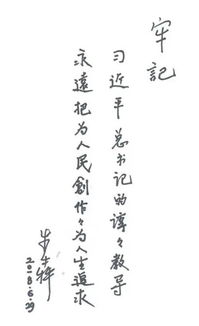 牢記
习近平总书记的諄々教导
永遠把为人民創作々为人生追求
牛犇
2018.6.29